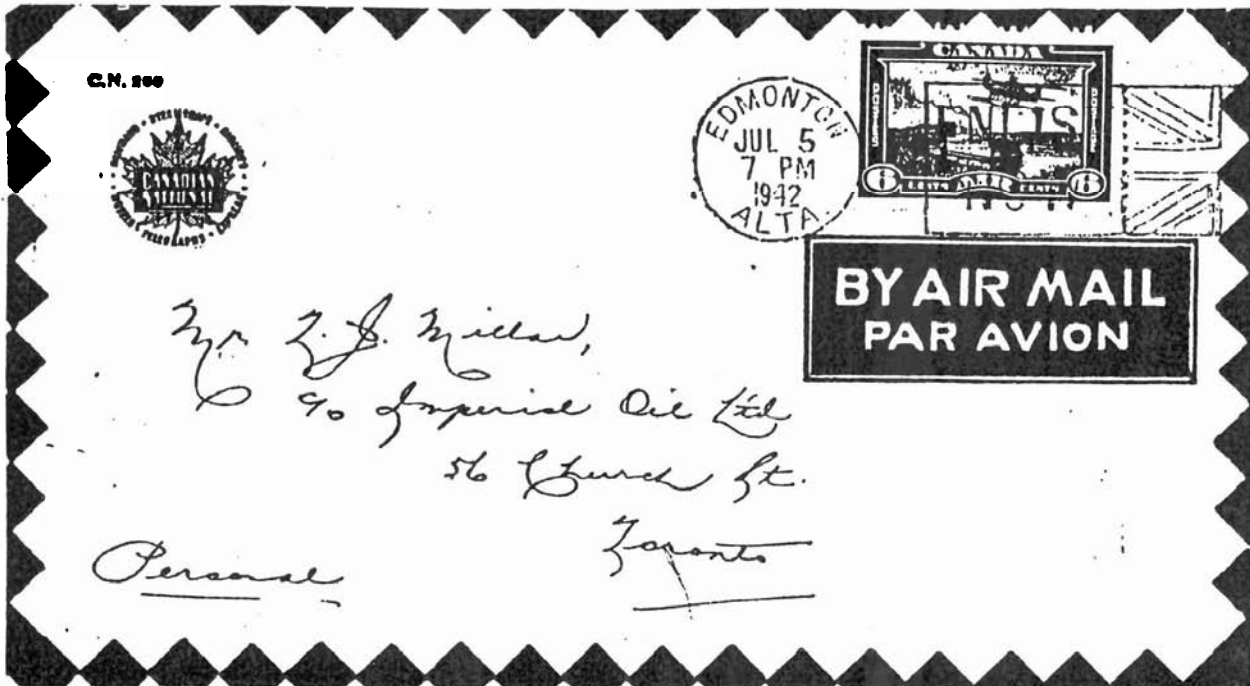 C.N. 200
CANADIAN
NATIONAL
EDMONTON
JUL 5
7 PM
1942
ALTA
CANADA
POSTES
POSTAGE
6 CENTS AIR CENTS 6
BY AIR MAIL
PAR AVION
Mr. Z. J. Millar,
c/o Imperial Oil Ltd
56 Church St.
Toronto
Personal